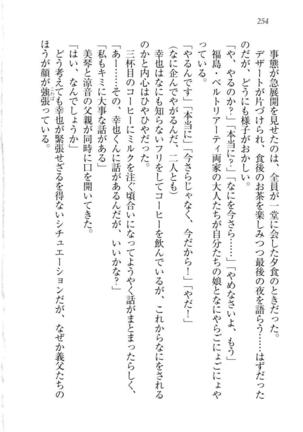 254
事態が急展開を見せたのは、全員が一堂に会した夕食のときだった。
デザートが片づけられ、食後のお茶を楽しみつつ最後の夜を語らう……はずだった
のだが、どうにも様子がおかしい。
「や、やるのか？」「本当に？」「なにを今さら……」「やめなさいよ、もう」
福島・ベルトリアーティ両家の大人たちが自分たちの娘となにやらごにょごにょや
っている。
「やるんです」「本当に」「今さらじゃなく、今だから！」「やだ！」
（なに企んでやがるんだ、二人とも）
幸也はなにも知らないフリをしてコーヒーを飲んでいるが、これからなにをされる
のかと内心はひやひやだった。
三杯目のコーヒーにミルクを注ぐ頃合いになってようやく話がまとまったらしく、
「あー……その、幸也くんに話があるんだが、いいかな？」
「私もキミに大事な話がある」
美琴と涼音の父親が同時に口を開いてきた。
「な、なんでしょうか」
どう考えても幸也が緊張せざるを得ないシチュエーションだが、なぜか義父たちの
ほうが顔が強張っている。